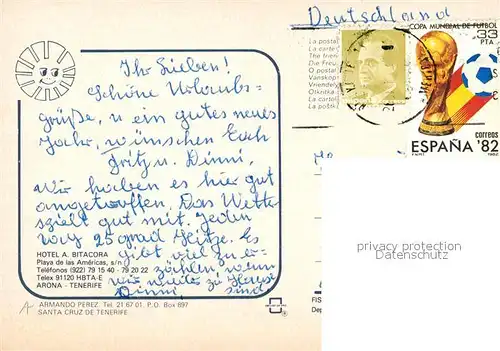 Deutschland
Ihr Lieben!
Schöne Urlaubs-
grüße, u ein gutes neues
Jahr, wünschen Euch
Fritz u. Dinni,
Wir haben es hier gut
angetroffen. Das Wetter
spielt gut mit. Jeden
Tag 25 grad Hitze. Es
gibt viel zu er-
zählen wenn
wir wieder zu Hause
sind
Dinni
HOTEL A. BITACORA
Playa de las Américas, s/n
Teléfonos (922) 79 15 40 - 79 20 22
Telex 91120 HBTA-E
ARONA - TENERIFE
ARMANDO PEREZ. Tel. 21 67 01. P.O. Box 697
SANTA CRUZ DE TENERIFE
La postal
La carte
The frien
Die Freu
O postal
Vanskap
Vriendel
Otkrotka
La cartol
La poštk
COPA MUNDIAL DE FUTBOL
33
PTA
correos
ESPAÑA '82
1982
privacy protection
Datenschutz
FIS
Dep